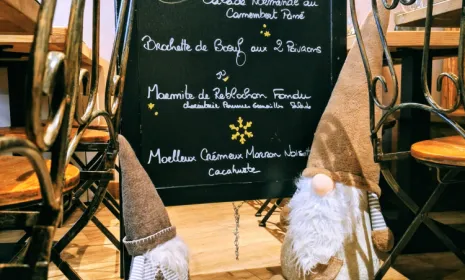 Salade Normande au
Camembert Pané
Brochette de Bœuf aux 2 Poivrons
Marmite de Reblochon Fondu
charcuterie Pommes Grenailles Salade
Moelleux Crémeux Marron Noisette
Cacahuète